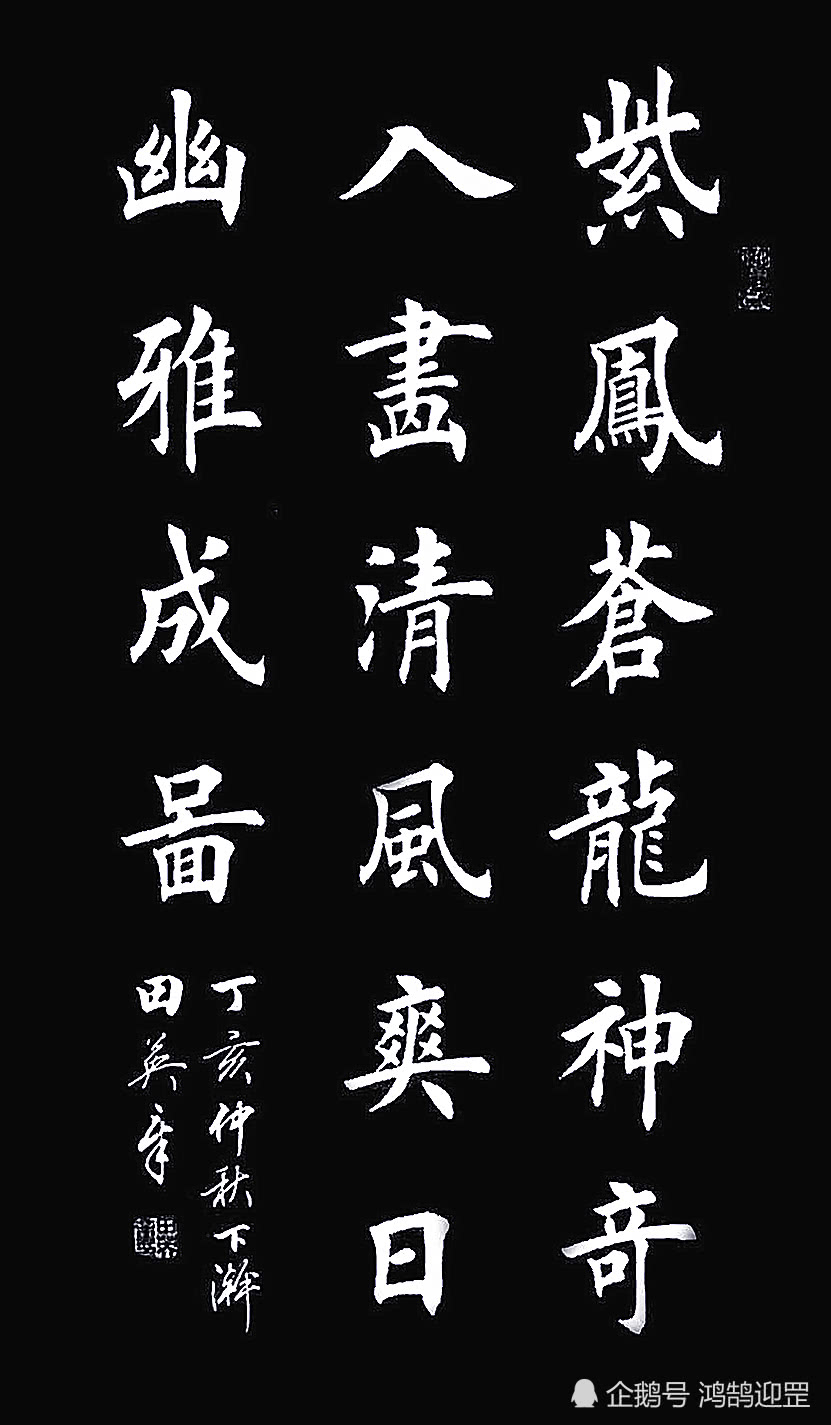 紫鳳蒼龍神奇
入畫清風爽日
幽雅成啚
丁亥仲秋下澣
田英章
企鹅号 鸿鹄迎罡